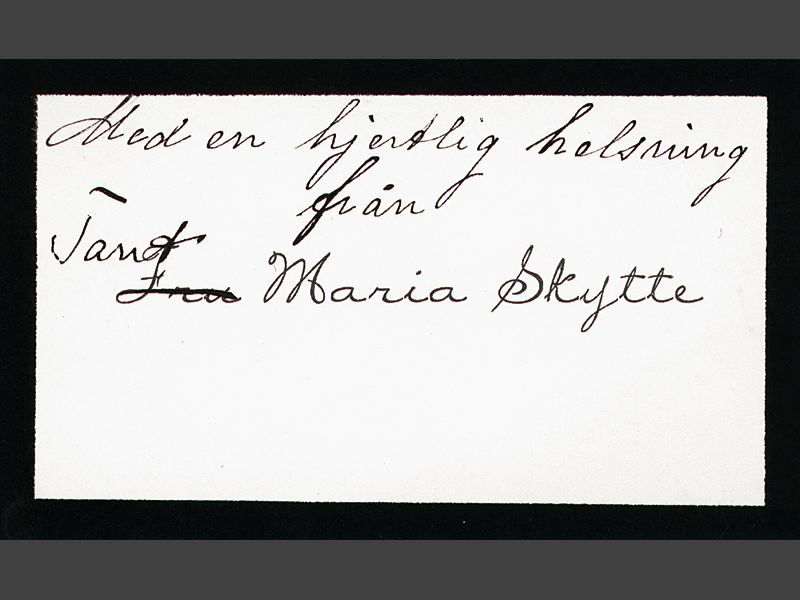 Med en hjertlig helsning
från
Tant
Fru Maria Skytte